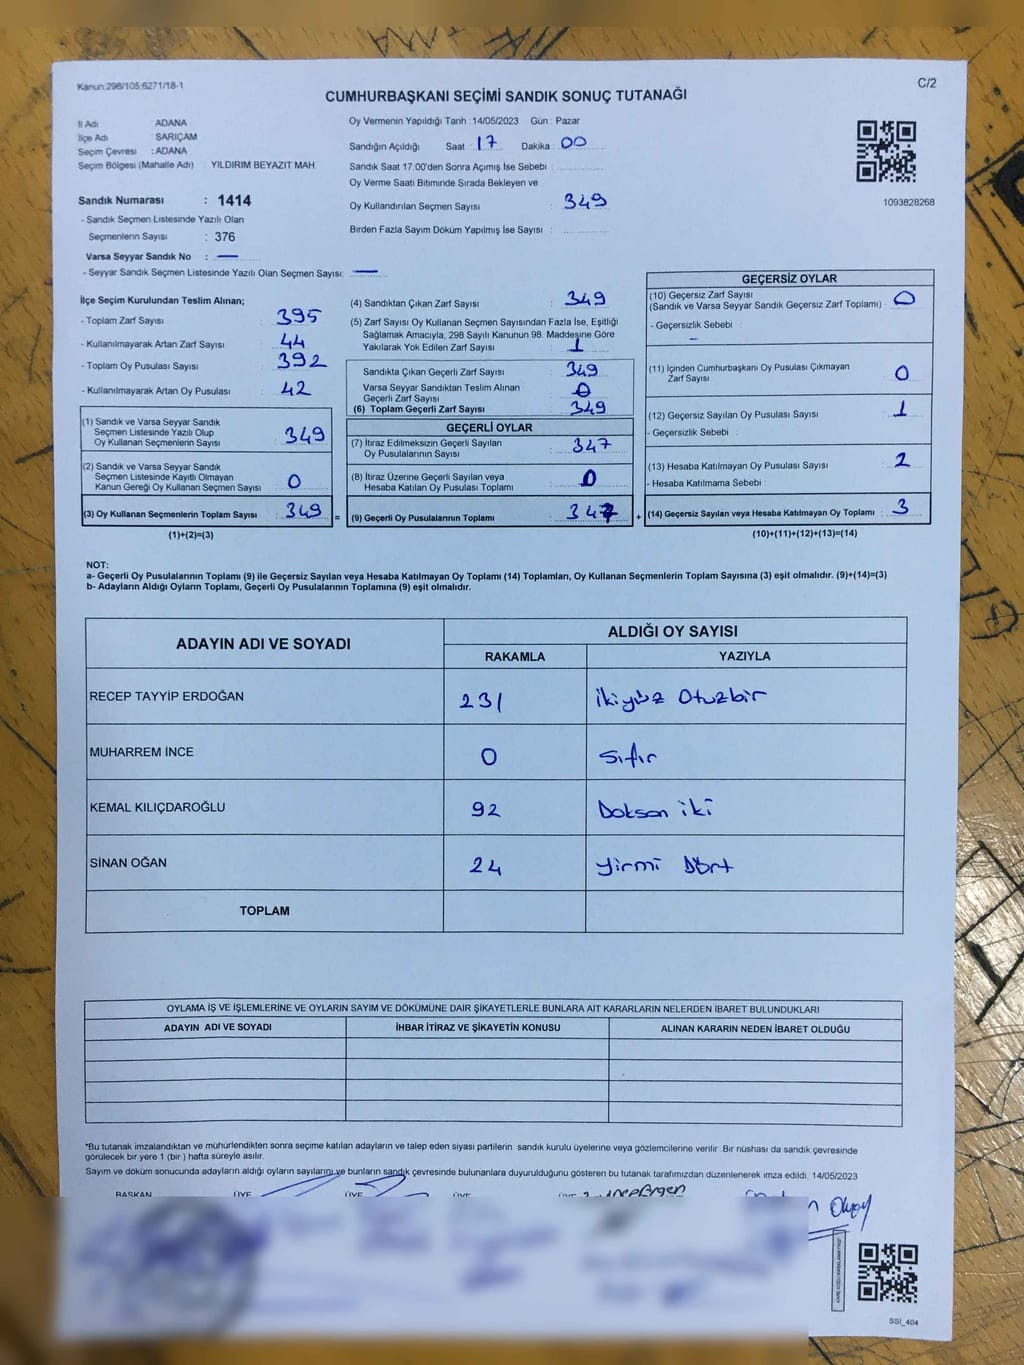 Kanun:298/105;6271/18-1
C/2
CUMHURBAŞKANI SEÇİMİ SANDIK SONUÇ TUTANAĞI
İl Adı ADANA
İlçe Adı : SARIÇAM
Seçim Çevresi :ADANA
Seçim Bölgesi (Mahalle Adı) : YILDIRIM BEYAZIT MAH.
Oy Vermenin Yapıldığı Tarih :14/05/2023 Gün : Pazar
Sandığın Açıldığı Saat 17 Dakika 00
Sandık Saat 17:00'den Sonra Açımış İse Sebebi :
Oy Verme Saati Bitiminde Sırada Bekleyen ve
Oy Kullandırılan Seçmen Sayısı : 349
Birden Fazla Sayım Döküm Yapılmış İse Sayısı :
1093828268
Sandık Numarası : 1414
- Sandık Seçmen Listesinde Yazılı Olan
Seçmenlerin Sayısı : 376
Varsa Seyyar Sandık No : —
- Seyyar Sandık Seçmen Listesinde Yazılı Olan Seçmen Sayısı: —
İlçe Seçim Kurulundan Teslim Alınan;
- Toplam Zarf Sayısı : 395
- Kullanılmayarak Artan Zarf Sayısı : 44
- Toplam Oy Pusulası Sayısı : 392
- Kullanılmayarak Artan Oy Pusulası : 42
(1) Sandık ve Varsa Seyyar Sandık
Seçmen Listesinde Yazılı Olup
Oy Kullanan Seçmenlerin Sayısı : 349
(2) Sandık ve Varsa Seyyar Sandık
Seçmen Listesinde Kayıtlı Olmayan
Kanun Gereği Oy Kullanan Seçmen Sayısı : 0
(3) Oy Kullanan Seçmenlerin Toplam Sayısı : 349
(1)+(2)=(3)
(4) Sandıktan Çıkan Zarf Sayısı : 349
(5) Zarf Sayısı Oy Kullanan Seçmen Sayısından Fazla İse, Eşitliği
Sağlamak Amacıyla, 298 Sayılı Kanunun 98. Maddesine Göre
Yakılarak Yok Edilen Zarf Sayısı : 1
Sandıkta Çıkan Geçerli Zarf Sayısı : 349
Varsa Seyyar Sandıktan Teslim Alınan
Geçerli Zarf Sayısı : 0
(6) Toplam Geçerli Zarf Sayısı : 349
GEÇERLİ OYLAR
(7) İtiraz Edilmeksizin Geçerli Sayılan
Oy Pusulalarının Sayısı : 347
(8) İtiraz Üzerine Geçerli Sayılan veya
Hesaba Katılan Oy Pusulası Toplamı : 0
= (9) Geçerli Oy Pusulalarının Toplamı : 347 +
GEÇERSİZ OYLAR
(10) Geçersiz Zarf Sayısı
(Sandık ve Varsa Seyyar Sandık Geçersiz Zarf Toplamı) : 0
- Geçersizlik Sebebi :
–
(11) İçinden Cumhurbaşkanı Oy Pusulası Çıkmayan
Zarf Sayısı : 0
(12) Geçersiz Sayılan Oy Pusulası Sayısı : 1
- Geçersizlik Sebebi :
(13) Hesaba Katılmayan Oy Pusulası Sayısı : 2
- Hesaba Katılmama Sebebi :
(14) Geçersiz Sayılan veya Hesaba Katılmayan Oy Toplamı : 3
(10)+(11)+(12)+(13)=(14)
NOT:
a- Geçerli Oy Pusulalarının Toplamı (9) ile Geçersiz Sayılan veya Hesaba Katılmayan Oy Toplamı (14) Toplamları, Oy Kullanan Seçmenlerin Toplam Sayısına (3) eşit olmalıdır. (9)+(14)=(3)
b- Adayların Aldığı Oyların Toplamı, Geçerli Oy Pusulalarının Toplamına (9) eşit olmalıdır.
ADAYIN ADI VE SOYADI
ALDIĞI OY SAYISI
RAKAMLA YAZIYLA
RECEP TAYYİP ERDOĞAN 231 ikiyüz Otuzbir
MUHARREM İNCE 0 Sıfır
KEMAL KILIÇDAROĞLU 92 Doksan iki
SİNAN OĞAN 24 Yirmi Dört
TOPLAM
OYLAMA İŞ VE İŞLEMLERİNE VE OYLARIN SAYIM VE DÖKÜMÜNE DAİR ŞİKAYETLERLE BUNLARA AİT KARARLARIN NELERDEN İBARET BULUNDUKLARI
ADAYIN ADI VE SOYADI İHBAR İTİRAZ VE ŞİKAYETİN KONUSU ALINAN KARARIN NEDEN İBARET OLDUĞU
*Bu tutanak imzalandıktan ve mühürlendikten sonra seçime katılan adayların ve talep eden siyasi partilerin sandık kurulu üyelerine veya gözlemcilerine verilir .Bir nüshası da sandık çevresinde
görülecek bir yere 1 (bir ) hafta süreyle asılır.
Sayım ve döküm sonucunda adayların aldığı oyların sayılarını ve bunların sandık çevresinde bulunanlara duyurulduğunu gösteren bu tutanak tarafımızdan düzenlenerek imza edildi. 14/05/2023
BAŞKAN ÜYE ÜYE ÜYE ÜYE
SSI_404